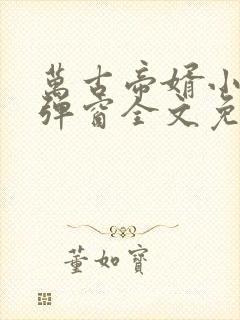 萬古帝婿小
彈窗全文免
董如寶